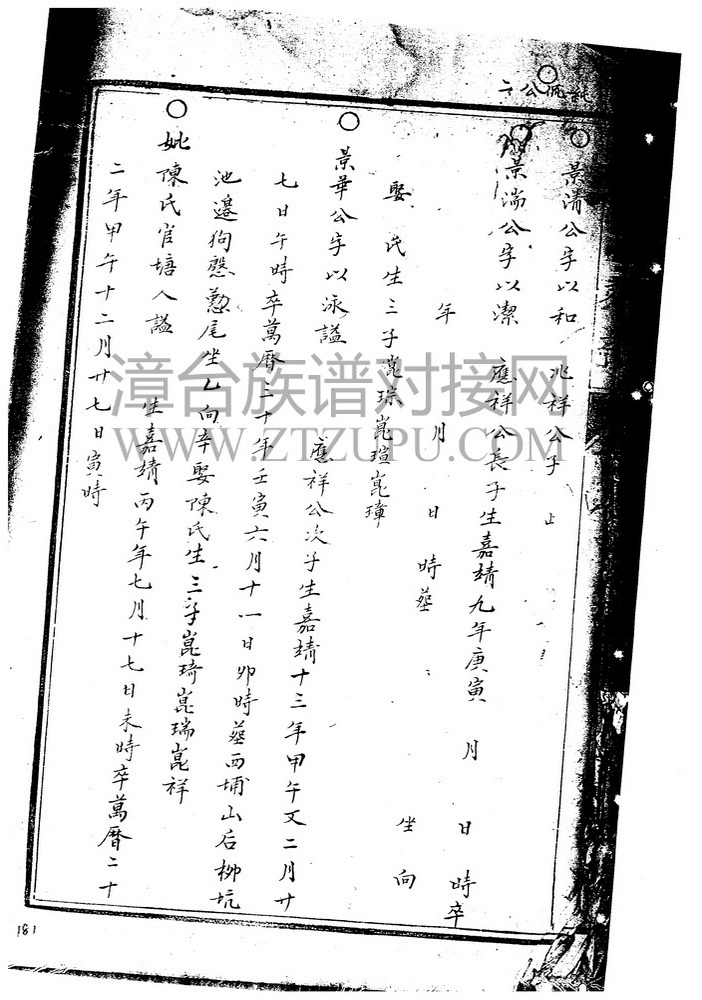 景清公字以和 兆祥公子 止
景湍公字以潔 應祥公長子生嘉靖九年庚寅 月 日 時卒
年 月 日 時葬 坐 向
娶 氏生三子崑琮崑瑄崑璋
景華公字以泳謚 應祥公次子生嘉靖十三年甲午又二月廿
七日午時卒萬曆三十年壬寅六月十一日卯時葬西埔山后柳坑
池邊狗 尾坐乙向辛娶陳氏生三子崑琦崑瑞崑祥
妣陳氏官塘人謚 生嘉靖丙午年七月十七日未時卒萬曆二十
二年甲午十二月廿七日寅時
漳台族谱对接网
WWW.ZTZUPU.COM
181